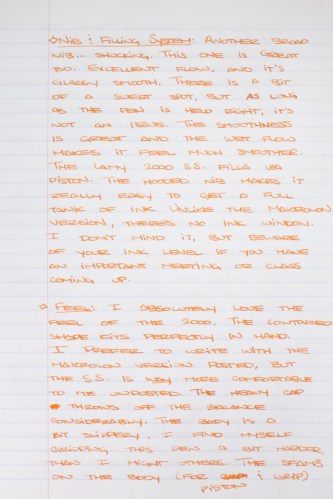 ◇ Nib & Filling System: Another broad
nib... shocking. This one is great
too. Excellent flow, and it's
glassy smooth. There is a bit
of a sweet spot, but as long
as the pen is held right, it's
not an issue. The smoothness
is great and the wet flow
makes it feel much smoother.
The Lamy 2000 S.S. fills via
piston. The hooded nib makes it
really easy to get a full
tank of ink. Unlike the Makrolon
version, there's no ink window.
I don't mind it, but beware
of your ink level if you have
an important meeting or class
coming up.
◇ Feel: I absolutely love the
feel of the 2000. The contoured
shape fits perfectly in hand.
I prefer to write with the
Makrolon version posted, but
the S.S. is way more comfortable
to me unposted. The heavy cap
throws off the balance
considerably. The body is a
bit slippery. I find myself
gripping this pen a bit harder
than I might others. The seams
on the body (for piston & grip)